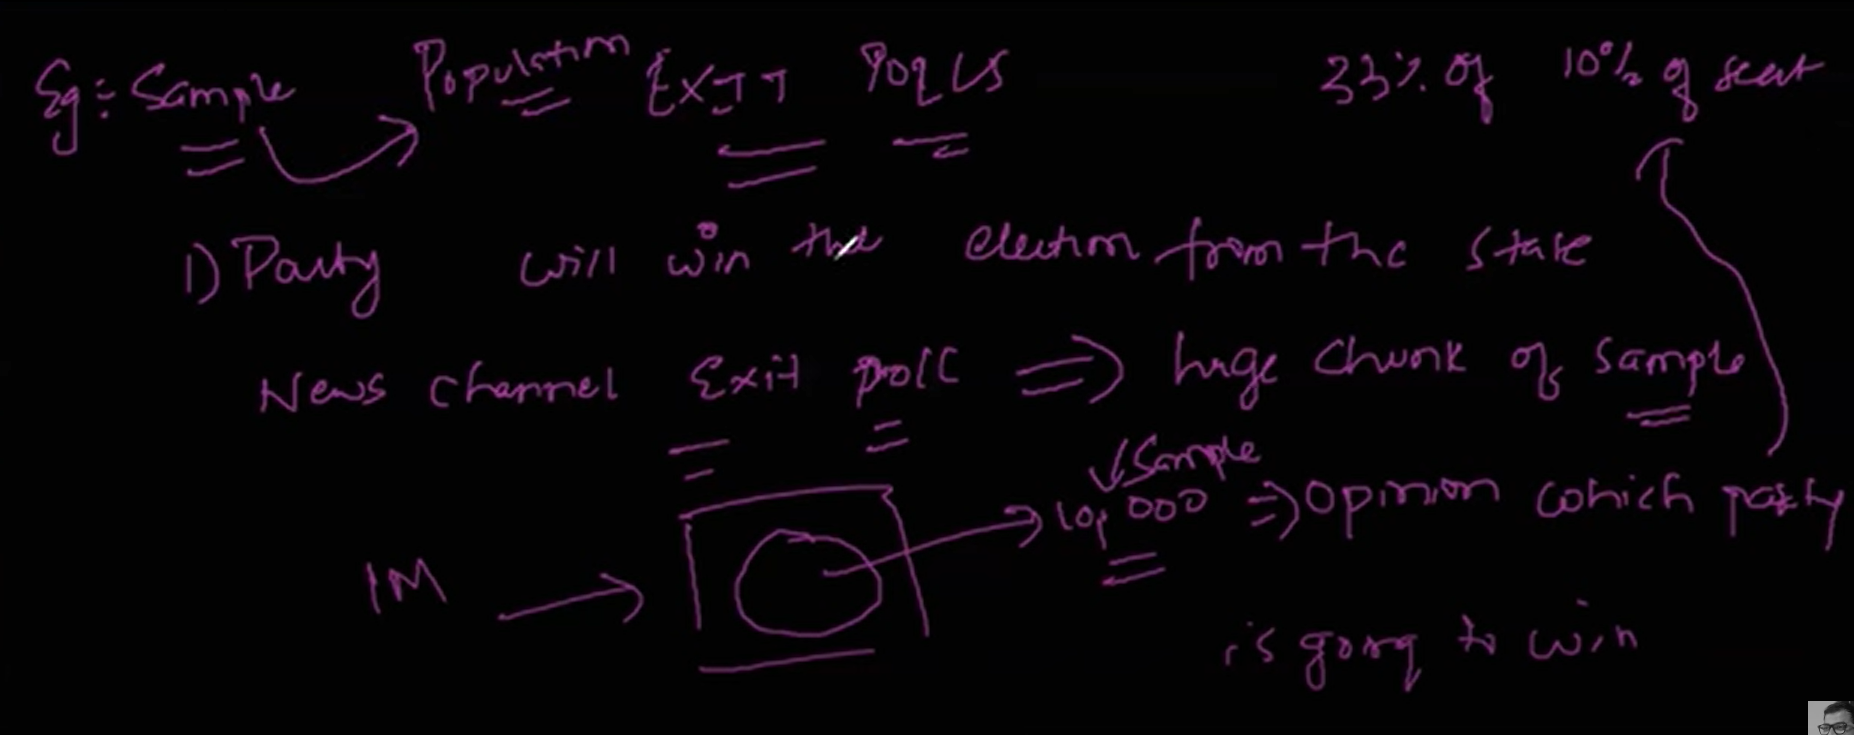 Eg:- Sample Population EXIT POLLS 33% of 10% of seat
1) Party will win the election from the state
News channel Exit poll => huge chunk of sample
Sample
1M 10,000 => Opinion which party
is going to win